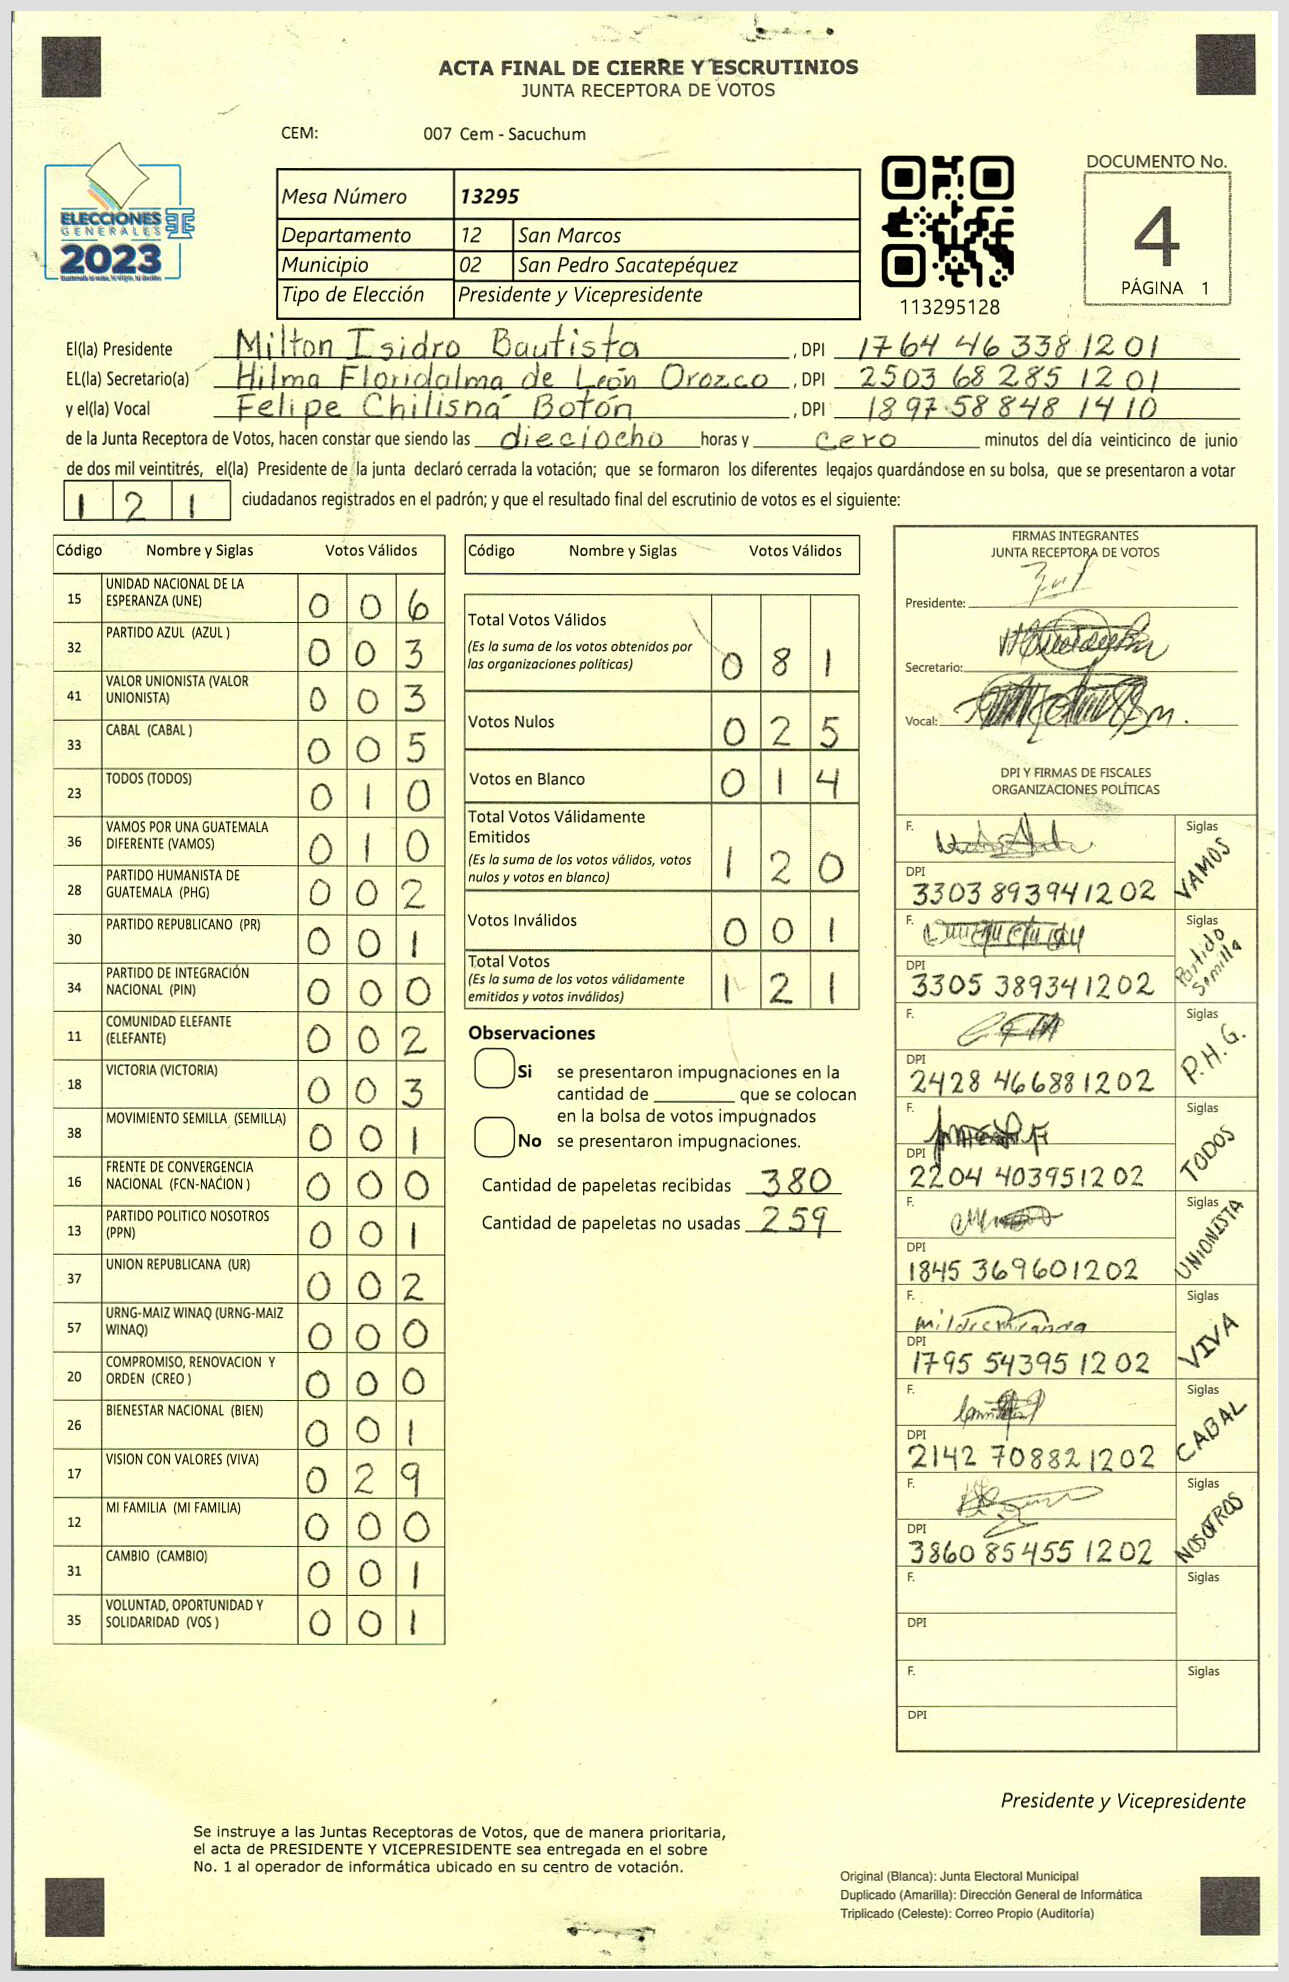 ACTA FINAL DE CIERRE Y ESCRUTINIOS
JUNTA RECEPTORA DE VOTOS
CEM: 007 Cem - Sacuchum
ELECCIONES
GENERALES
2023
Mesa Número 13295
Departamento 12 San Marcos
Municipio 02 San Pedro Sacatepéquez
Tipo de Elección Presidente y Vicepresidente
113295128
DOCUMENTO No.
4
PÁGINA 1
El(la) Presidente Milton Isidro Bautista , DPI 1764 46338 1201
EL(la) Secretario(a) Hilma Floridalma de León Orozco , DPI 2503 68285 1201
y el(la) Vocal Felipe Chilisná Botón , DPI 1897 58848 1410
de la Junta Receptora de Votos, hacen constar que siendo las dieciocho horas y cero minutos del día veinticinco de junio
de dos mil veintitrés, el(la) Presidente de la junta declaró cerrada la votación; que se formaron los diferentes legajos guardándose en su bolsa, que se presentaron a votar
1 2 1 ciudadanos registrados en el padrón; y que el resultado final del escrutinio de votos es el siguiente:
Código Nombre y Siglas Votos Válidos
15 UNIDAD NACIONAL DE LA ESPERANZA (UNE) 0 0 6
32 PARTIDO AZUL (AZUL ) 0 0 3
41 VALOR UNIONISTA (VALOR UNIONISTA) 0 0 3
33 CABAL (CABAL ) 0 0 5
23 TODOS (TODOS) 0 1 0
36 VAMOS POR UNA GUATEMALA DIFERENTE (VAMOS) 0 1 0
28 PARTIDO HUMANISTA DE GUATEMALA (PHG) 0 0 2
30 PARTIDO REPUBLICANO (PR) 0 0 1
34 PARTIDO DE INTEGRACIÓN NACIONAL (PIN) 0 0 0
11 COMUNIDAD ELEFANTE (ELEFANTE) 0 0 2
18 VICTORIA (VICTORIA) 0 0 3
38 MOVIMIENTO SEMILLA (SEMILLA) 0 0 1
16 FRENTE DE CONVERGENCIA NACIONAL (FCN-NACION ) 0 0 0
13 PARTIDO POLITICO NOSOTROS (PPN) 0 0 1
37 UNION REPUBLICANA (UR) 0 0 2
57 URNG-MAIZ WINAQ (URNG-MAIZ WINAQ) 0 0 0
20 COMPROMISO, RENOVACION Y ORDEN (CREO ) 0 0 0
26 BIENESTAR NACIONAL (BIEN) 0 0 1
17 VISION CON VALORES (VIVA) 0 2 9
12 MI FAMILIA (MI FAMILIA) 0 0 0
31 CAMBIO (CAMBIO) 0 0 1
35 VOLUNTAD, OPORTUNIDAD Y SOLIDARIDAD (VOS ) 0 0 1
Código Nombre y Siglas Votos Válidos
Total Votos Válidos
(Es la suma de los votos obtenidos por
las organizaciones políticas) 0 8 1
Votos Nulos 0 2 5
Votos en Blanco 0 1 4
Total Votos Válidamente
Emitidos
(Es la suma de los votos válidos, votos
nulos y votos en blanco) 1 2 0
Votos Inválidos 0 0 1
Total Votos
(Es la suma de los votos válidamente
emitidos y votos inválidos) 1 2 1
Observaciones
Si se presentaron impugnaciones en la
cantidad de ________ que se colocan
en la bolsa de votos impugnados
No se presentaron impugnaciones.
Cantidad de papeletas recibidas 380
Cantidad de papeletas no usadas 259
FIRMAS INTEGRANTES
JUNTA RECEPTORA DE VOTOS
Presidente:
Secretario:
Vocal:
DPI Y FIRMAS DE FISCALES
ORGANIZACIONES POLÍTICAS
F. Siglas
DPI 3303 89394 1202 VAMOS
F. Siglas
DPI 3305 38934 1202 Partido Semilla
F. Siglas
DPI 2428 46688 1202 P.H.G.
F. Siglas
DPI 2204 40395 1202 TODOS
F. Siglas
DPI 1845 36960 1202 UNIONISTA
F. Siglas
DPI 1795 54395 1202 VIVA
F. Siglas
DPI 2142 70882 1202 CABAL
F. Siglas
DPI 3860 85455 1202 NOSOTROS
F. Siglas
DPI
F. Siglas
DPI
Presidente y Vicepresidente
Se instruye a las Juntas Receptoras de Votos, que de manera prioritaria,
el acta de PRESIDENTE Y VICEPRESIDENTE sea entregada en el sobre
No. 1 al operador de informática ubicado en su centro de votación.
Original (Blanca): Junta Electoral Municipal
Duplicado (Amarilla): Dirección General de Informática
Triplicado (Celeste): Correo Propio (Auditoría)